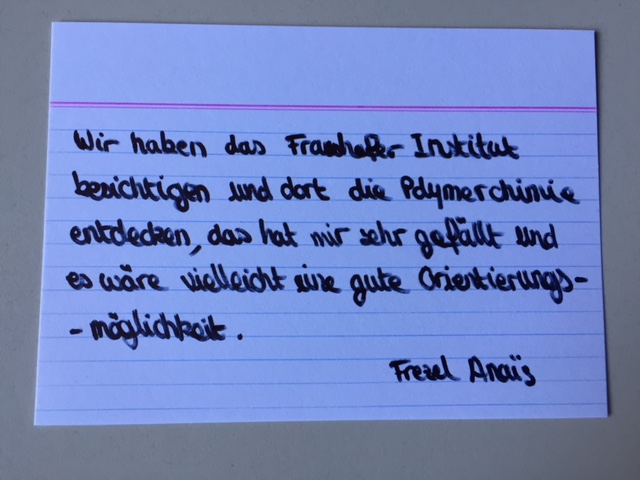 Wir haben das Fraunhofer Institut
besichtigen und dort die Polymerchimie
entdecken, das hat mir sehr gefällt und
es wäre vielleicht eine gute Orientierungs-
-möglichkeit.
Frezel Anaïs